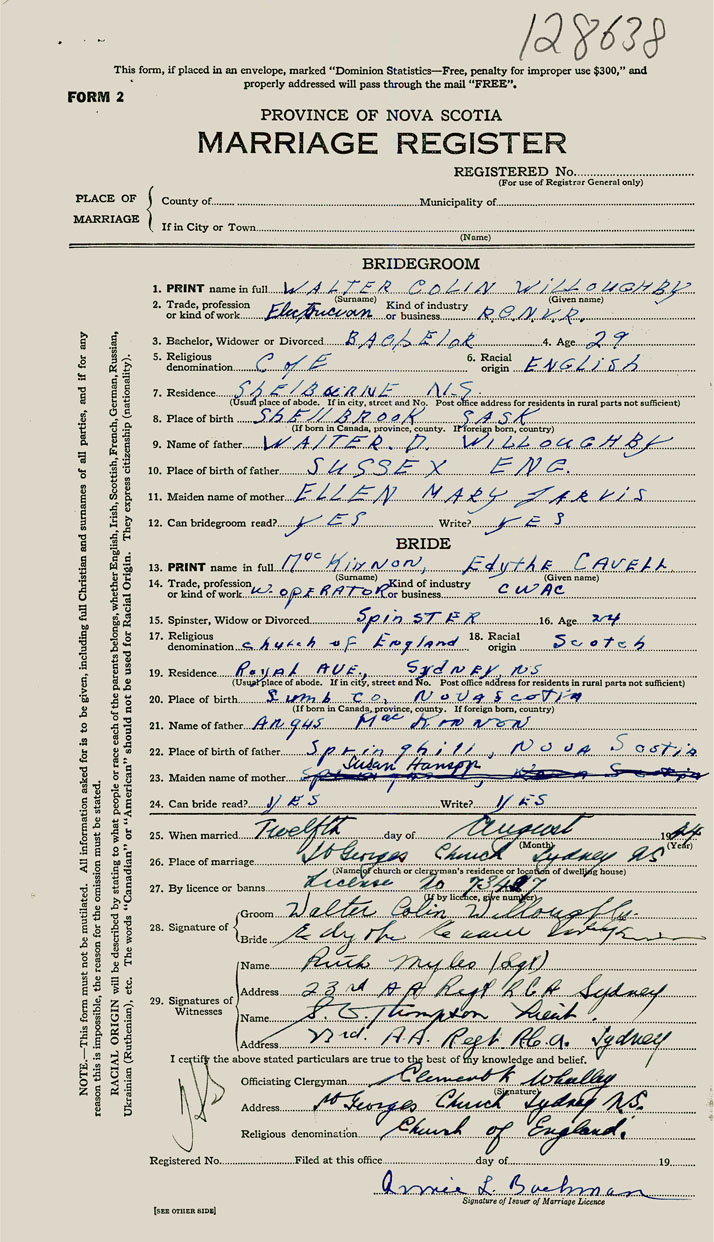 128638
This form, if placed in an envelope, marked "Dominion Statistics—Free, penalty for improper use $300," and
properly addressed will pass through the mail "FREE".
FORM 2
PROVINCE OF NOVA SCOTIA
MARRIAGE REGISTER
REGISTERED No.
(For use of Registrar General only)
PLACE OF MARRIAGE
County of Municipality of
If in City or Town
(Name)
BRIDEGROOM
1. PRINT name in full WALTER COLIN WILLOUGHBY
(Surname) (Given name)
2. Trade, profession or kind of work Electrician Kind of industry or business R.C.N.V.R.
3. Bachelor, Widower or Divorced BACHELOR 4. Age 29
5. Religious denomination C of E 6. Racial origin ENGLISH
7. Residence ShElBoURNE N.S.
(Usual place of abode. If in city, street and No. Post office address for residents in rural parts not sufficient)
8. Place of birth ShEllBROOK SASK
(If born in Canada, province, county. If foreign born, country)
9. Name of father WALTER. D. WILLOUGHBY
10. Place of birth of father SUSSEX ENG.
11. Maiden name of mother ELLEN MARY JARVIS
12. Can bridegroom read? YES Write? YES
BRIDE
13. PRINT name in full MacKinnon, Edythe CAVELL
(Surname) (Given name)
14. Trade, profession or kind of work W. OPERATOR Kind of industry or business CWAC
15. Spinster, Widow or Divorced SpinSTER 16. Age 24
17. Religious denomination church of England 18. Racial origin Scotch
19. Residence Royal AVE., Sydney, NS
(Usual place of abode. If in city, street and No. Post office address for residents in rural parts not sufficient)
20. Place of birth Cumb Co, NOVA Scotia
(If born in Canada, province, county. If foreign born, country)
21. Name of father Angus MacKinnon
22. Place of birth of father Springhill, NOVA Scotia
Susan Hanson
23. Maiden name of mother
24. Can bride read? YES Write? YES
25. When married Twelfth day of August 1944
(Month) (Year)
26. Place of marriage St Georges Church Sydney NS
(Name of church or clergyman's residence or location of dwelling house)
27. By licence or banns License No
(If by licence, give number)
28. Signature of
Groom Walter Colin Willoughby
Bride Edythe Cavell
29. Signatures of Witnesses
Name Ruth Myles (Sgt)
Address 23rd AA Regt R.C.A Sydney
Name S. G. Thompson Lieut.
Address 23rd. A.A. Regt R.C.A. Sydney
I certify the above stated particulars are true to the best of my knowledge and belief.
Officiating Clergyman Clement Whalley
(Signature)
Address St Georges Church Sydney N.S.
Religious denomination Church of England.
Registered No. Filed at this office day of 19
Annie L. Buchman
Signature of Issuer of Marriage Licence
[SEE OTHER SIDE]
NOTE.—This form must not be mutilated. All information asked for is to be given, including full Christian and surnames of all parties, and if for any
reason this is impossible, the reason for the omission must be stated.
RACIAL ORIGIN will be described by stating to what people or race each of the parents belongs, whether English, Irish, Scottish, French, German, Russian,
Ukrainian (Ruthenian), etc. The words "Canadian" or "American" should not be used for Racial Origin. They express citizenship (nationality).